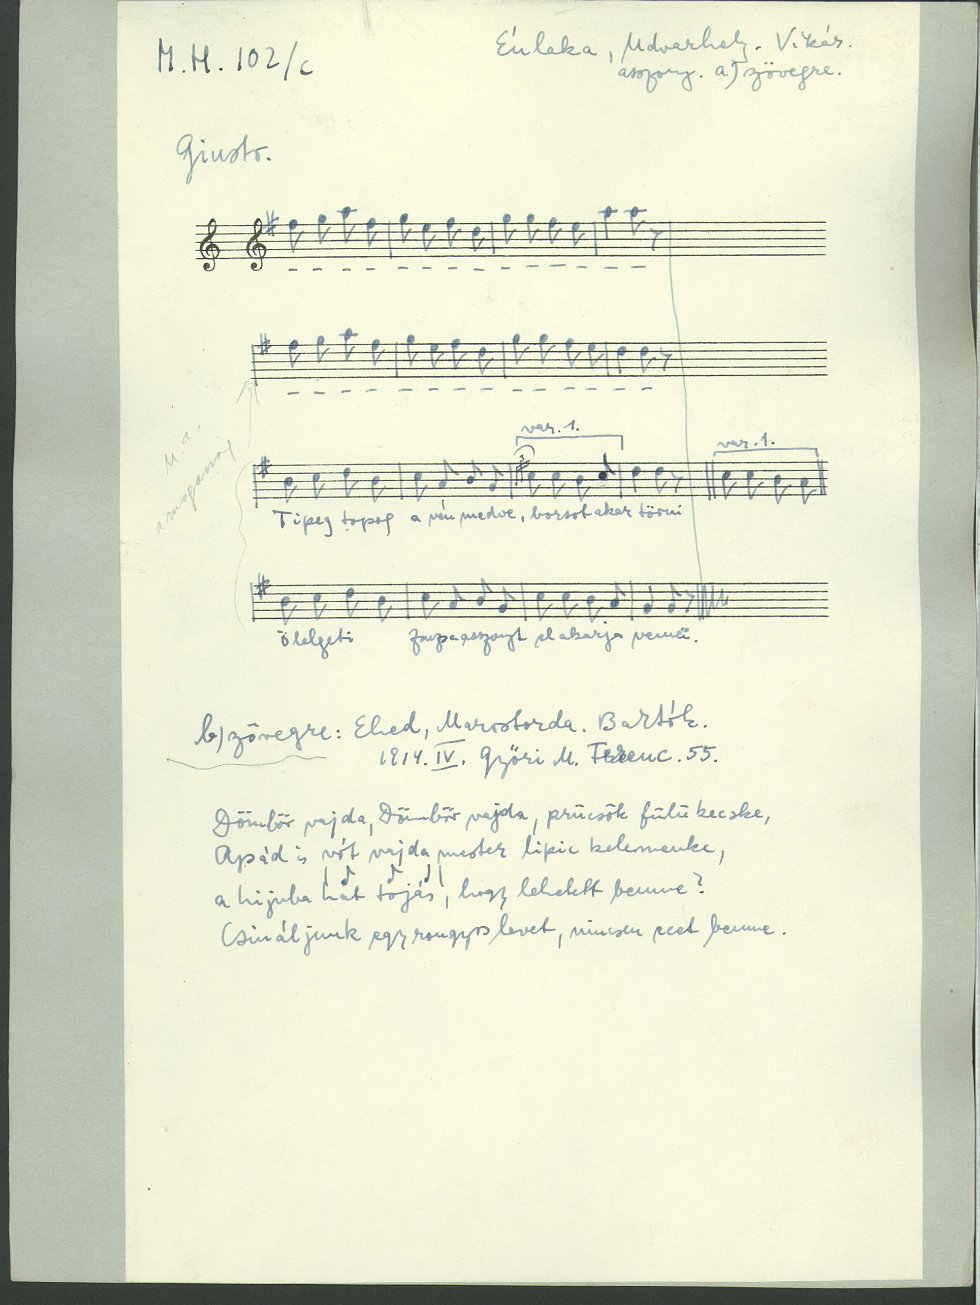 M.H. 102/c
Énlaka, Udvarhely. Vikár.
asszony. a) szövegre.
Giusto.
U.a.
var. 1.
var. 1.
Tipeg topog a vén medve, borsot akar törni
ölelgeti zsupaasszonyt el akarja venni.
b) szövegre: Ehed, Marostorda. Bartók.
1914. IV. Győri M. Ferenc. 55.
Dömbör vajda, Dömbör vajda, prücsök fülü kecske,
Apád is vót vajda mester lipic kelemenke,
a hijuba hat tojás, hogy lehelett benne?
Csináljunk egy rongyos levet, nincsen ecet benne.